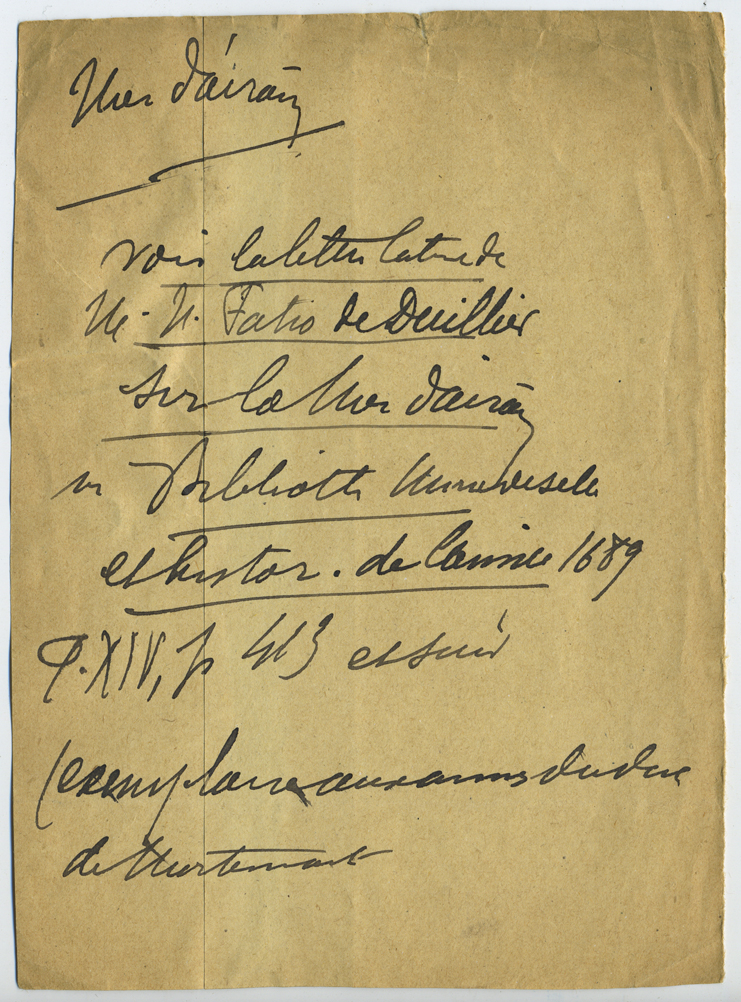 Mer d'airain
voir la lettre latine de
M. N. Fatio de Duillier
sur la Mer d'airain
in Biblioth Universelle
et histor. de l'année 1689
T. XIV, p 413 et suiv
(exemplaire aux armes du duc
de Mortemart